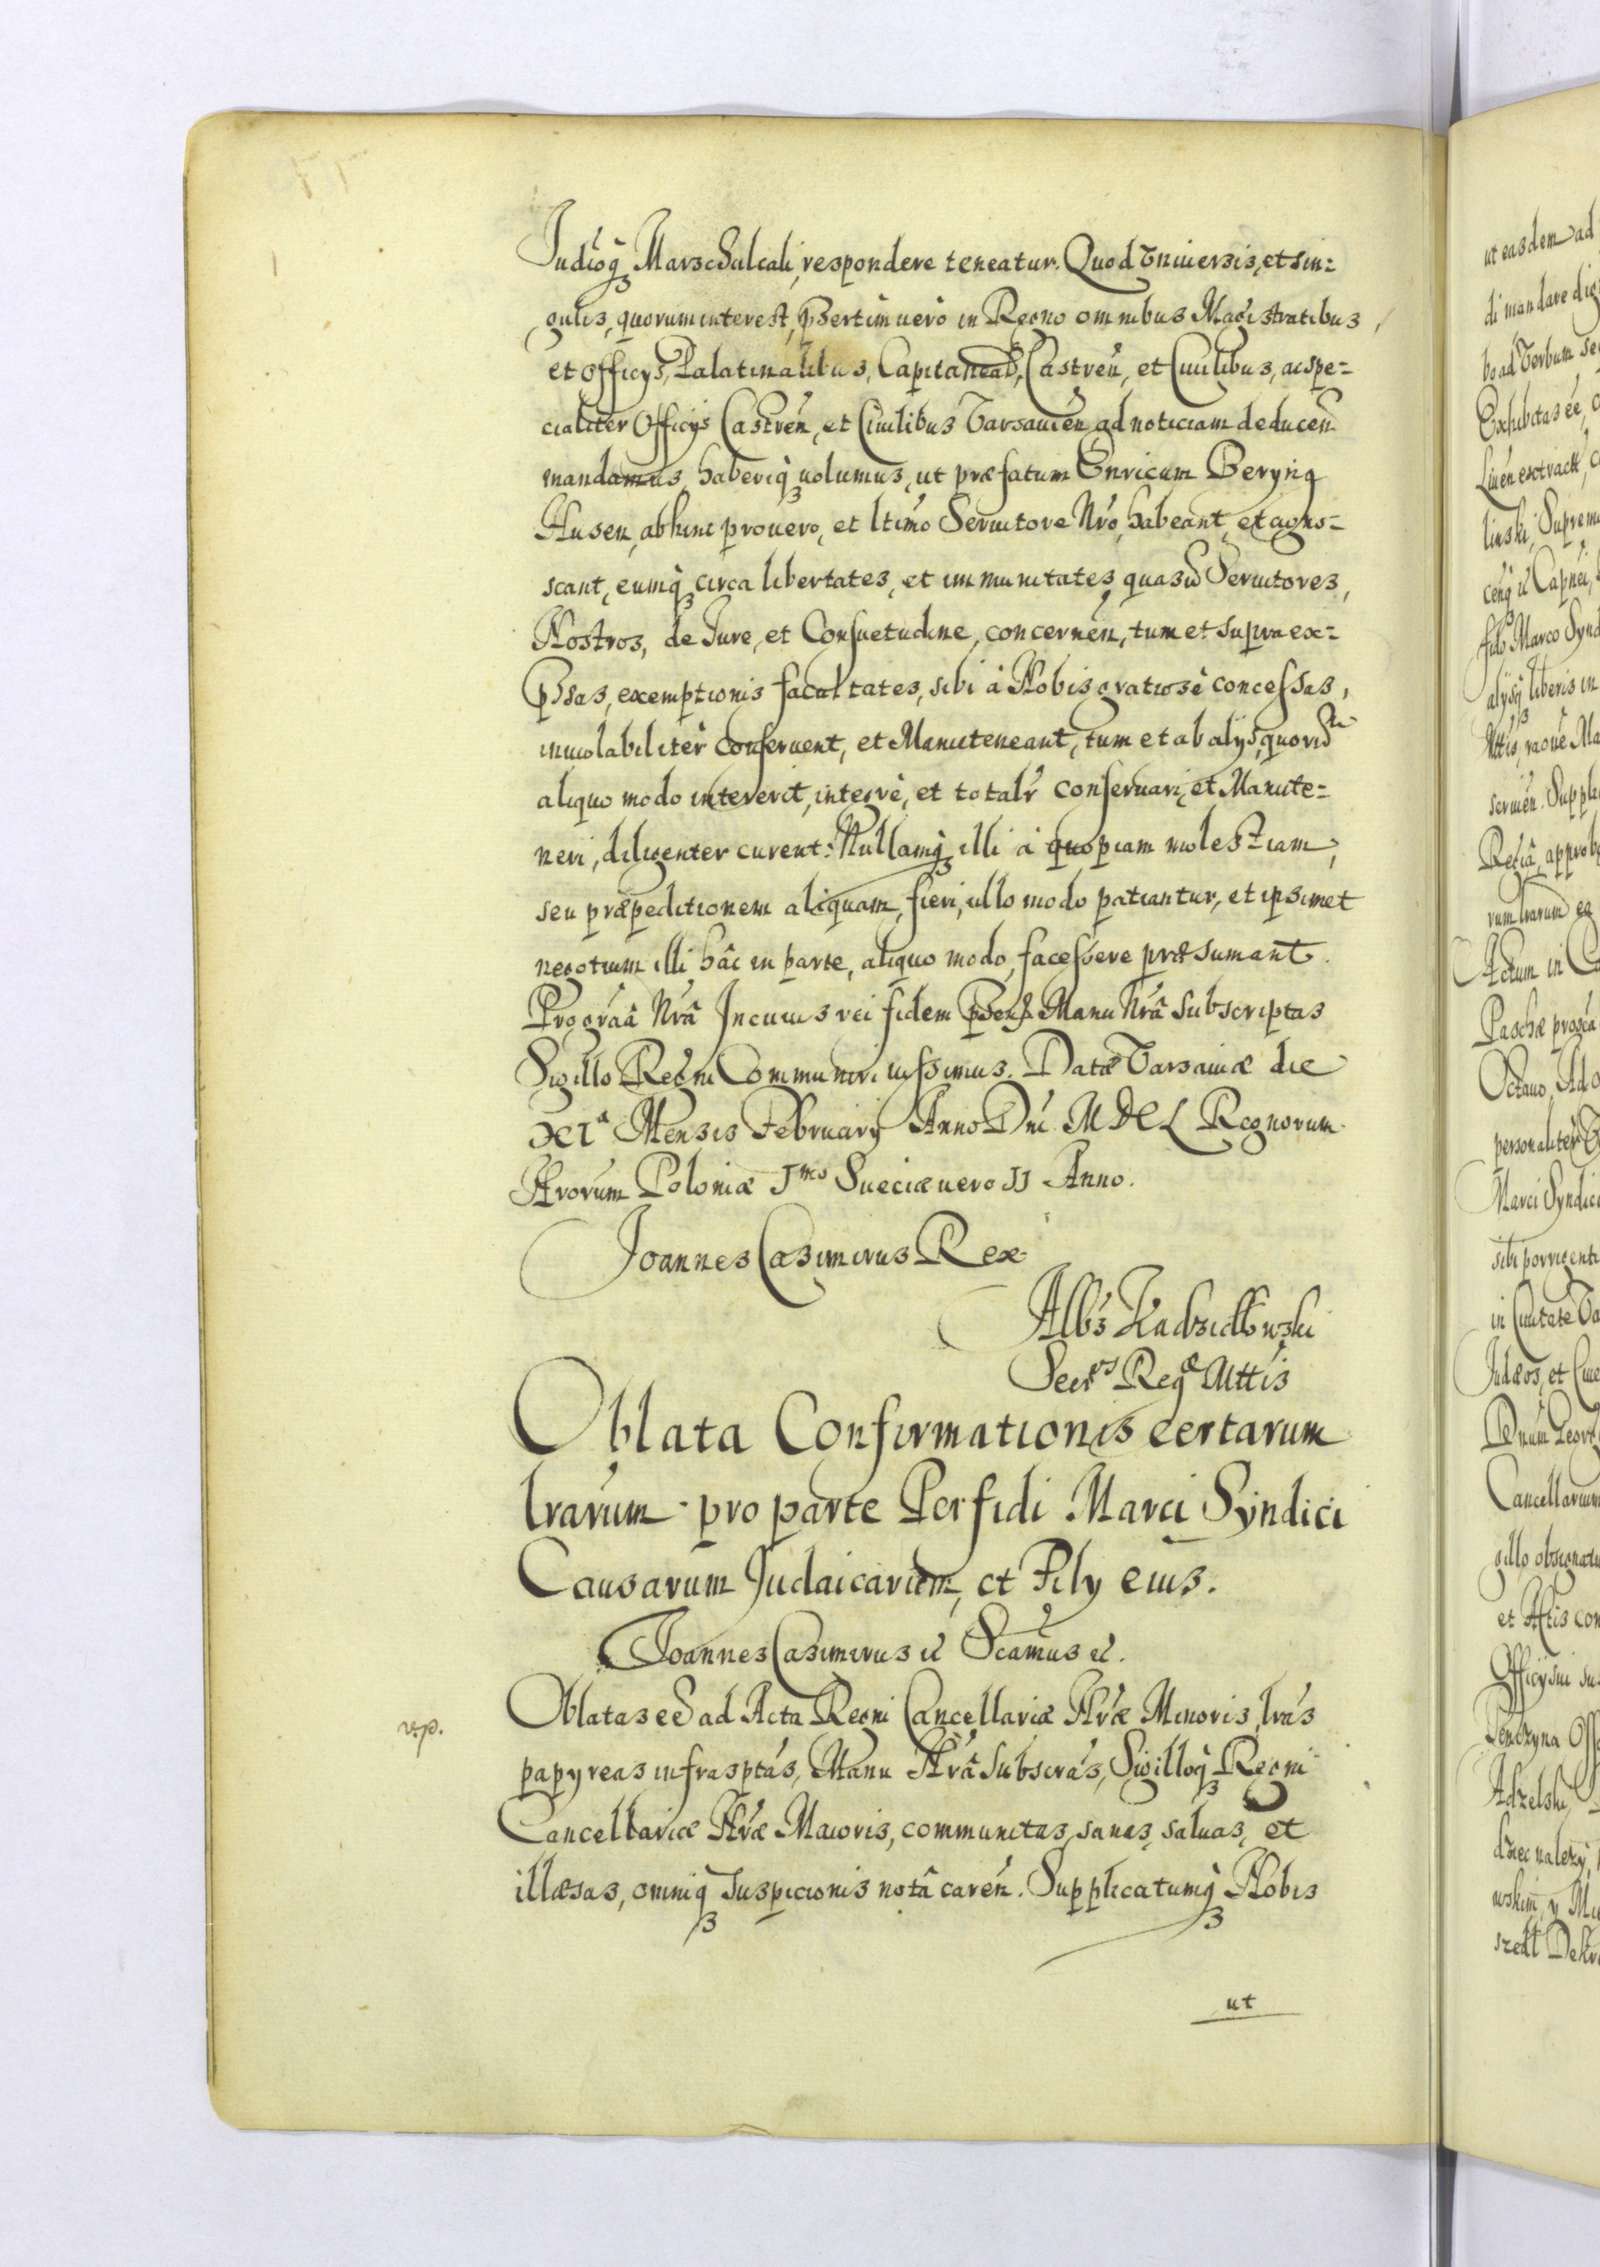 Judioq̃ Marschalcali, respondere teneatur. Quod Vniuersis, et sin=
gulis, quorum interest, p̃sertim uerò in Regno omnibus Magistratibus,
et Officijs, Palatinalibus, Capitaneab, Castreñ, et Ciuilibus, ac spe=
cialiter Officijs Castreñ, et Ciuilibus Varsauieñ ad noticiam deduceñ
mandamus, haberiq̃ uolumus, ut præfatum Enricum Beryng
Husen, abhinc pro uero, et ltimo Seruitore Nr̃o, habeant, et agno=
scant, eumq̃ circa libertates, et immunitates, quasũ Seruitores,
Nostros, de Jure, et Consuetudine, concerneñ, tum et supra ex=
p̃ssas, exemptionis facultates, sibi à Nobis gratiosè concessas,
inuiolabiliter conseruent, et Manuteneant, tum et ab alijs, quorũ
aliquo modo intererit, integrè, et totalr̃ conseruari, et Manute=
neri, diligenter curent: Nullamq̃ illi à quopiam molestiam,
seu præpeditionem aliquam, fieri, ullo modo patiantur, et ipsimet
negotium illi hâc in parte, aliquo modo, facessere præsumant.
Pro grãâ Nr̃â In cuius rei fidem p̃sens Manu Nr̃â subscriptas
Sigillo Regni Communiri iussimus. Datæ Varsauiæ die
XIa Mensis February Anno Dñi MDCL Regnorum
Nrorum Poloniæ Jmo Sueciæ uero JJ Anno.
Joannes Casimirus Rex
Albs̃ Kadzidłowski
Secrus Regæ Mttis
Oblata Confirmationis certarum
lrarum pro parte Perfidi Marci Syndici
Causarum Judaicarum, et Fily eius.
Joannes Casimirus et̃ Scamũs et̃.
Oblatas eẽ ad Acta Regni Cancellariæ Nr̃æ Minoris, lrãs
vp.
papyreas infrasptãs, Manu Nr̃â Subscrãs, Sigilloq̃ Regni
Cancellariæ Nr̃æ Maioris, communitas, sanas, saluas, et
illæsas, omniq̃ suspicionis notâ careñ. Supplicatumq̃ Nobis
ut
ut easdem ad
di mandare dig
bo ad Verbum se
Exhibitas eẽ,
linski, Suprem
Marco Synd
liberis in
Supple
approb
Actum in Ca
Paschæ
Octauo, Ad
personaliter
Marci Syndici
sibi porrigenti
in Ciuitate Va
Judæos, et Ciue
Cancellarium
et Actis con
Officij sui
Adzelski,